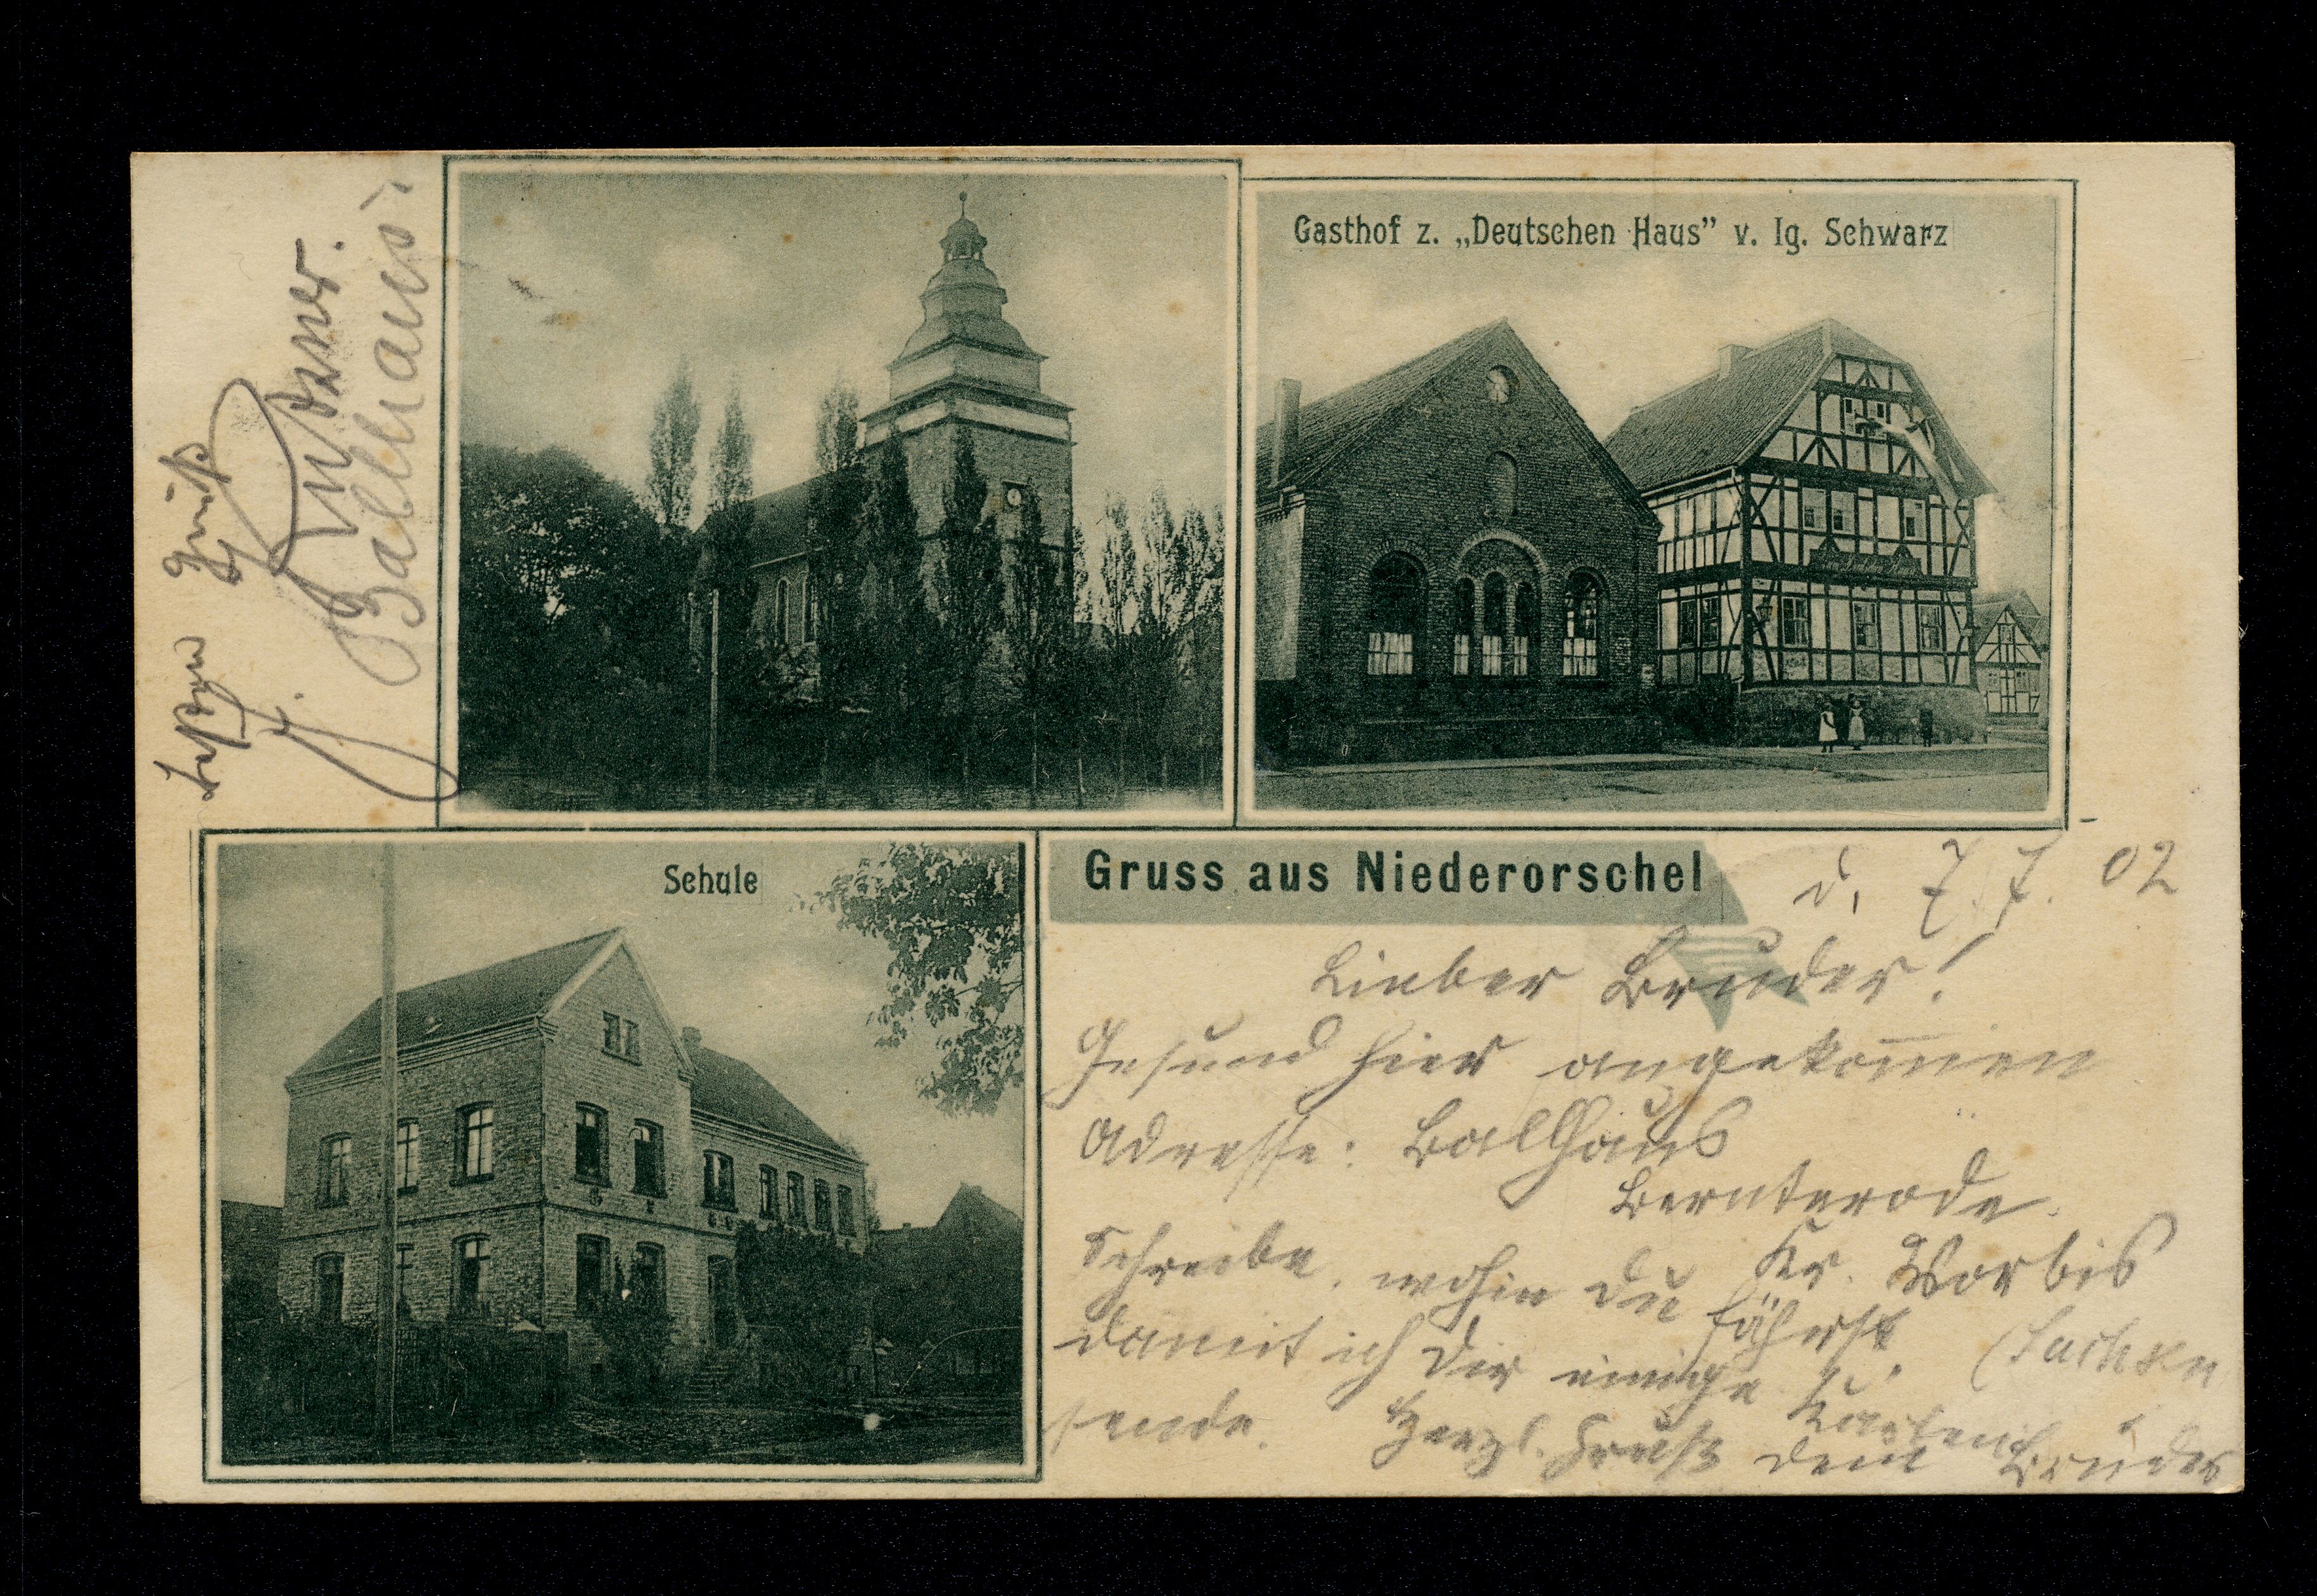 Gasthof z. „Deutschen Haus” v. Ig. Schwarz
Schule
Gruss aus Niederorschel
d. 7.7.02
Lieber Bruder!
Gesund hier angekom̅en
Adresse: Ballhaus
Bernterode.
Kr. Worbis
(Sachsen
Schreibe, wohin Du fährst,
damit ich Dir einige Karten
sende. Herzl. Gruß Dein Bruder
Gruß
Ballhaus